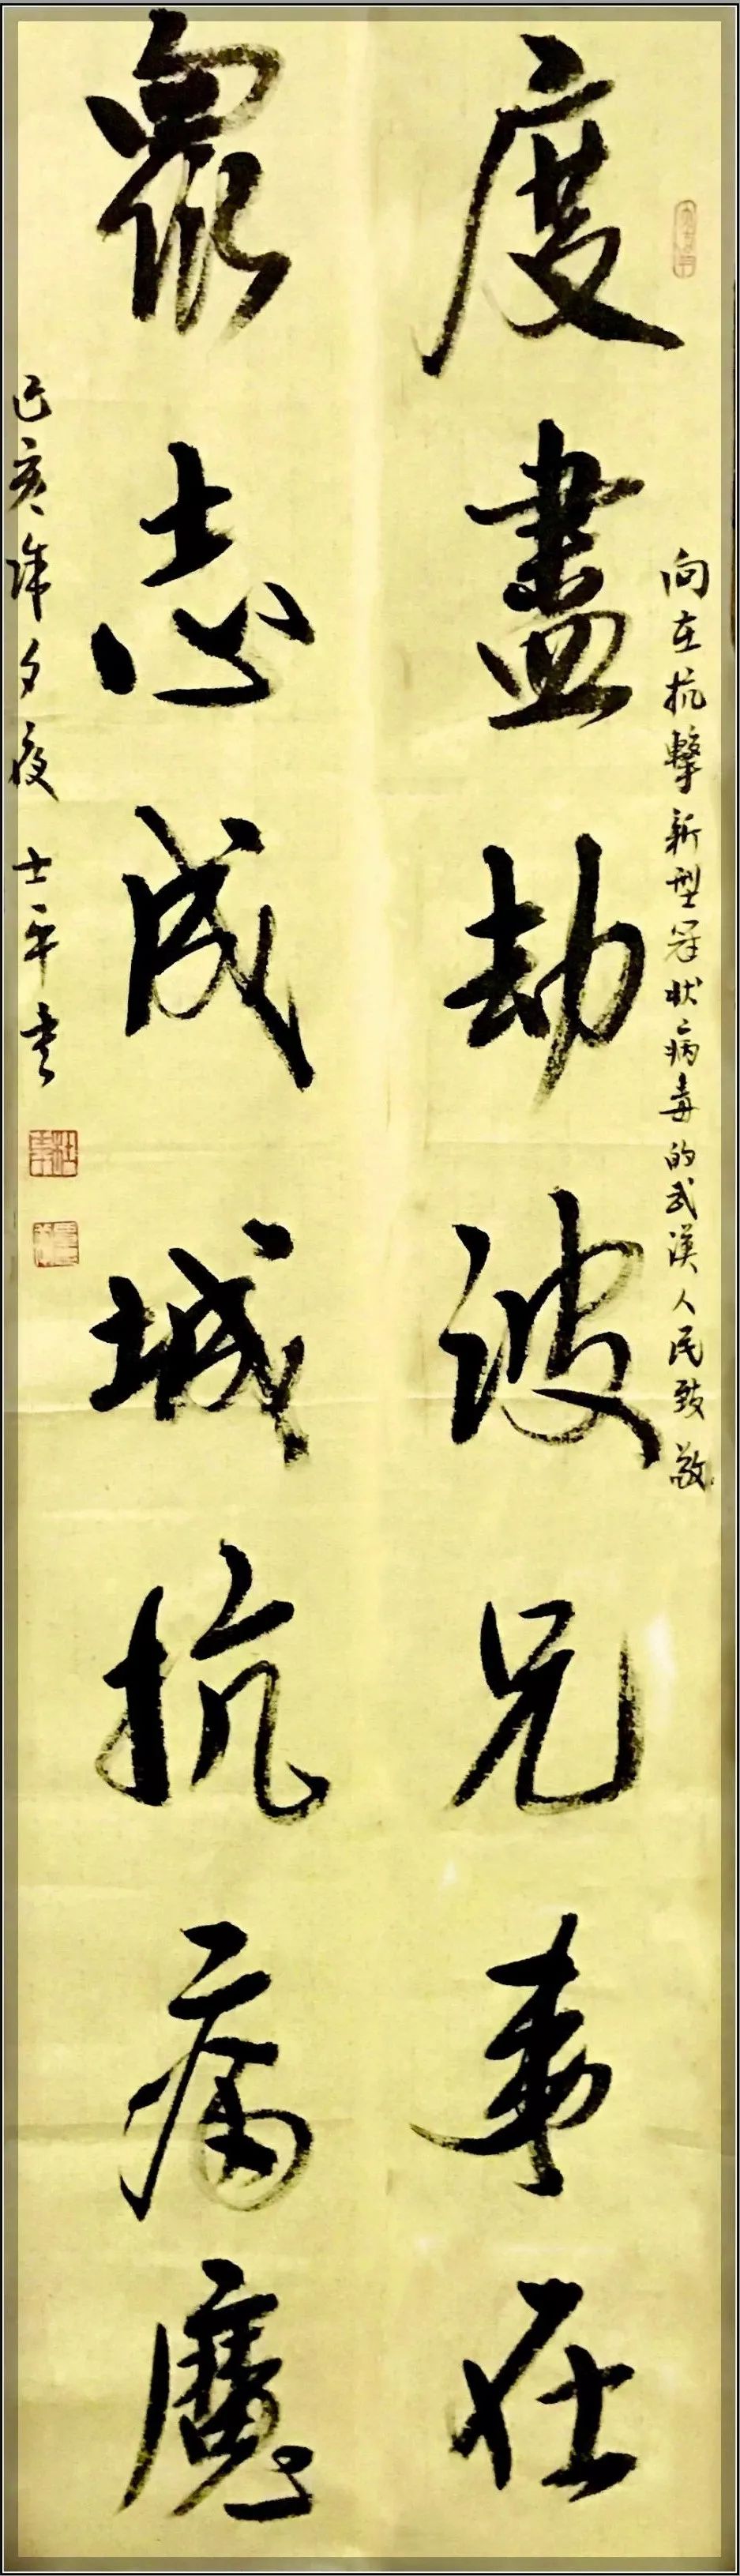 向在抗擊新型冠状病毒的武漢人民致敬
度盡劫波兄弟在
衆志成城抗病魔
己亥除夕夜 士平書